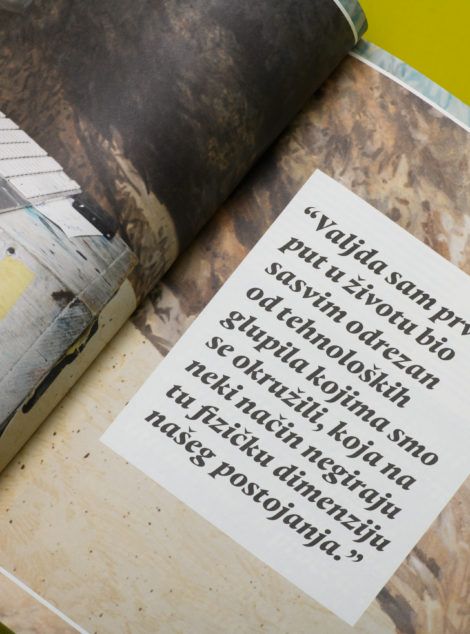 “Valjda sam prv
put u životu bio
sasvim odrezan
od tehnoloških
glupila kojima smo
se okružili, koja na
neki način negiraju
tu fizičku dimenziju
našeg postojanja.”